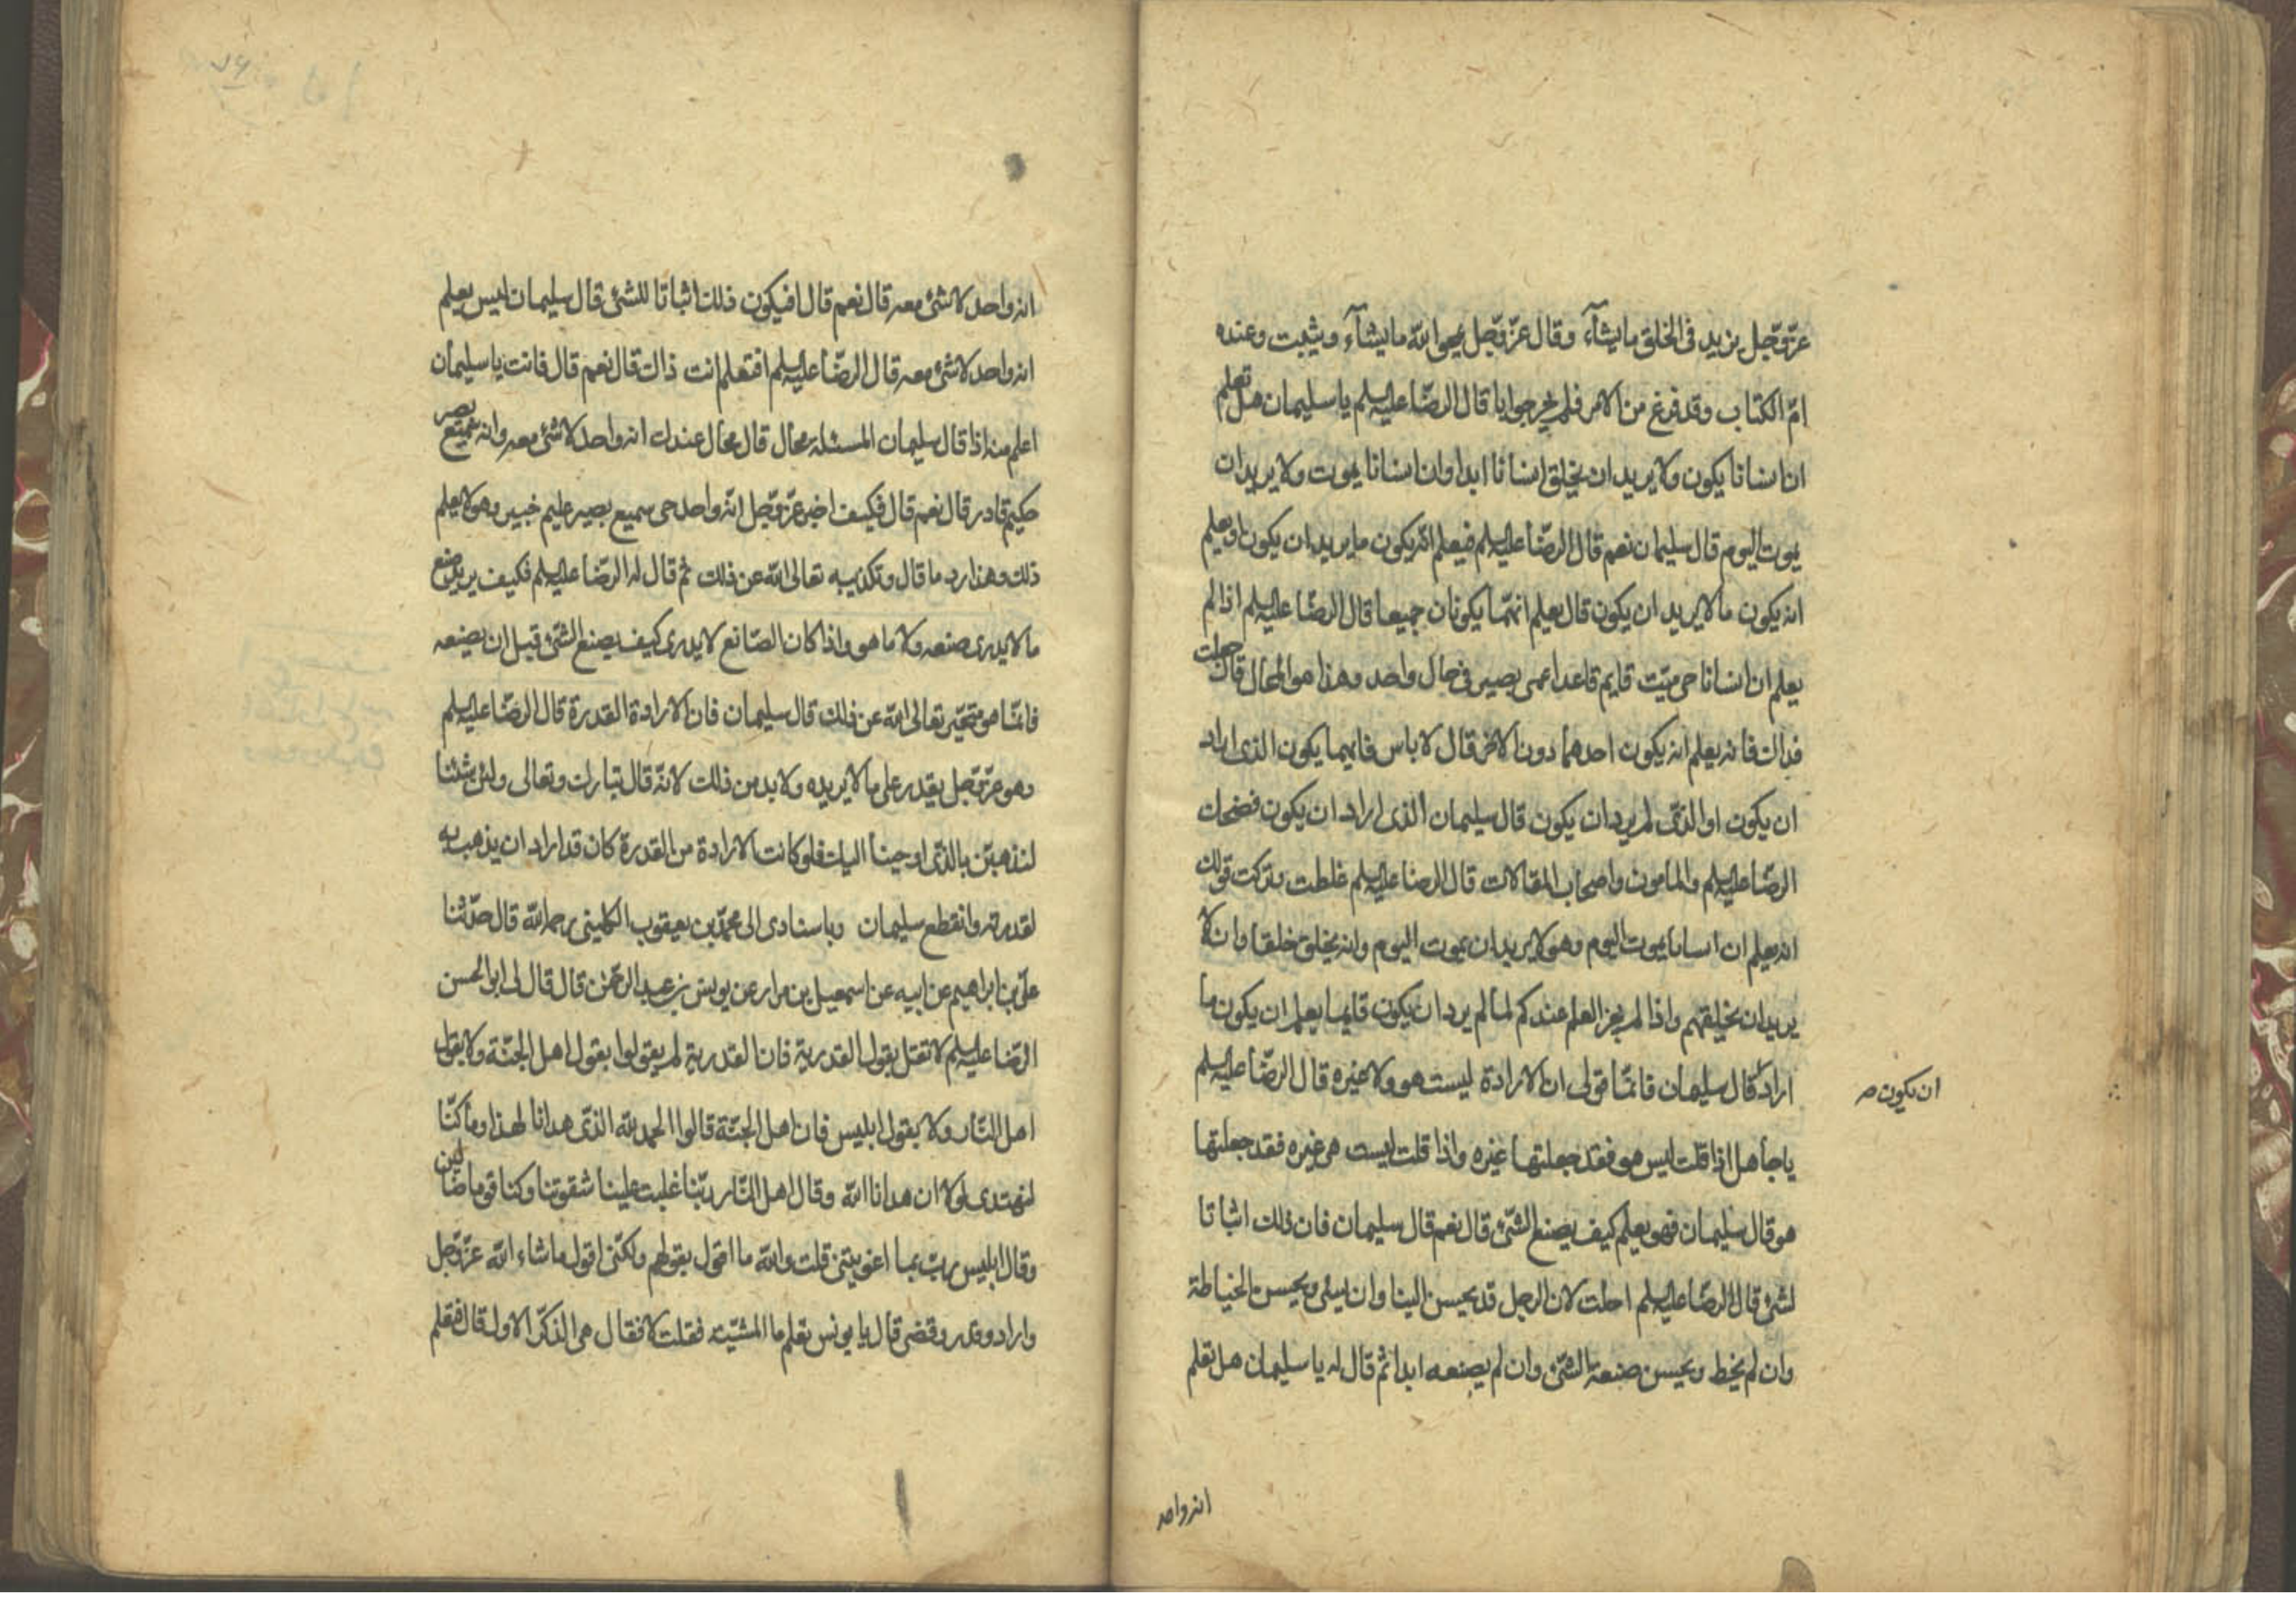 عزّ وجّل يزيد فى الخلق ما يشآء وقال عزّ وجّل يمحوا الله ما يشآء ويثبت وعنده
امّ الكتاب وقد فرغ من الامر فلم يحر جوابا قال الرضّا عليه السلم يا سليمان هل تعلم
ان انسانا يكون ولا يريد ان يخلق انسانا ابدا وان انسانا يموت ولا يريد ان
يموت اليوم قال سليمان نعم قال الرضّا عليه السلم فيعلم انّه يكون ما يريد ان يكون او يعلم
انه يكون ما لا يريد ان يكون قال يعلم انهّما يكونان جميعا قال الرضّا عليه السلم اذا لم
يعلم ان انسانا حى ميّت قايم قاعد اعمى بصير فى حال واحد وهذا هو المحال قال جعلت
فداك فانه يعلم انه يكون احدهما دون الاخر قال لا باس فايهما يكون الذى اراد
ان يكون او الذّى لم يرد ان يكون قال سليمان الذى اراد ان يكون فضحك
الرضّا عليه السلم والمامون واصحاب المقالات قال الرضا عليه السلم غلطت وتركت قولك
انه يعلم ان انسانا يموت اليوم وهو لا يريد ان يموت اليوم وانه يخلق خلقا وانه لا
يريد ان يخلقهم واذا لم يجز العلم عندكم لما لم يرد ان يكون فانما يعلم ان يكون ما
اراد قال سليمان فانمّا قولى ان الارادة ليست هو ولا غيره قال الرضّا عليه السلم
ان يكون صر
يا جاهل اذا قلت ليس هو فقد جعلتها غيره واذا قلت ليست هى غيره فقد جعلتها
هو قال سليمان فهو يعلم كيف يصنع الشّئ قال نعم قال سليمان فان ذلك اثباتا
لشئ قال الرضّا عليه السلم احلت لان الرجل قد يحسن البنا وان لم يبن ويحسن الخياطة
وان لم يخط ويحسن صنعة الشّئ وان لم يصنعه ابدا ثم قال له يا سليمان هل تعلم
انه واحد
انه واحد لا شئ معه قال نعم قال افيكون ذلك اثباتا للشئ قال سليمان ليس يعلم
انه واحد لا شئ معه قال الرضّا عليه السلم افتعلم انت ذاك قال نعم قال فانت يا سليمان
اعلم منه اذا قال سليمان المسئله محال قال محال عندك انه واحد لا شئ معه وانه سميع بصير
حكيم قادر قال نعم قال فكيف اخبر عزّ وجّل انّه واحد حى سميع بصير عليم خبير وهو لا يعلم
ذلك وهذا رد ما قال وتكذيبه تعالى الله عن ذلك ثم قال له الرضّا عليه السلم فكيف يريد صنع
ما لا يدرى صنعه ولا ما هو واذا كان الصّانع لا يدرى كيف يصنع الشّئ قبل ان يصنعه
فانمّا هو متحيّر تعالى الله عن ذلك قال سليمان فان الارادة القدرة قال الرضّا عليه السلم
وهو عزّ وجّل يقدر على ما لا يريده ولا بد من ذلك لانّه قال تبارك وتعالى ولئن شئنا
لنذهبنّ بالذّى اوحينا اليك فلو كانت الارادة من القدرة كان قد اراد ان يذهب به
لقدرته وانقطع سليمان وباسنادى الى محمّد بن يعقوب الكلينى رحمه الله قال حدّثنا
علىّ بن ابراهيم عن ابيه عن اسمعيل بن مرار عن يونس بن عبد الرحمٰن قال قال لى ابو الحسن
الرّضا عليه السلم لا تقل بقول القدريّة فان القدرية لم يقولوا بقول اهل الجنّة ولا بقول
اهل النّار ولا بقول ابليس فان اهل الجنّة قالوا الحمد لله الذّى هدانا لهذا وما كنّا
لنهتدى لولا ان هدانا الله وقال اهل النّار ربّنا غلبت علينا شقوتنا وكنا قوما ضالّين
وقال ابليس ربّ بما اغويتنى قلت والله ما اقول بقولهم ولكنّى اقول ما شاء الله عزّ وجّل
واراد وقدر وقضى قال يا يونس تعلم ما المشيّة فقلت لا فقال هى الذكر الاول قال افتعلم